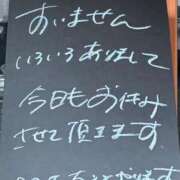 すいません
いろいろありまして
今日もお休み
させて頂きます